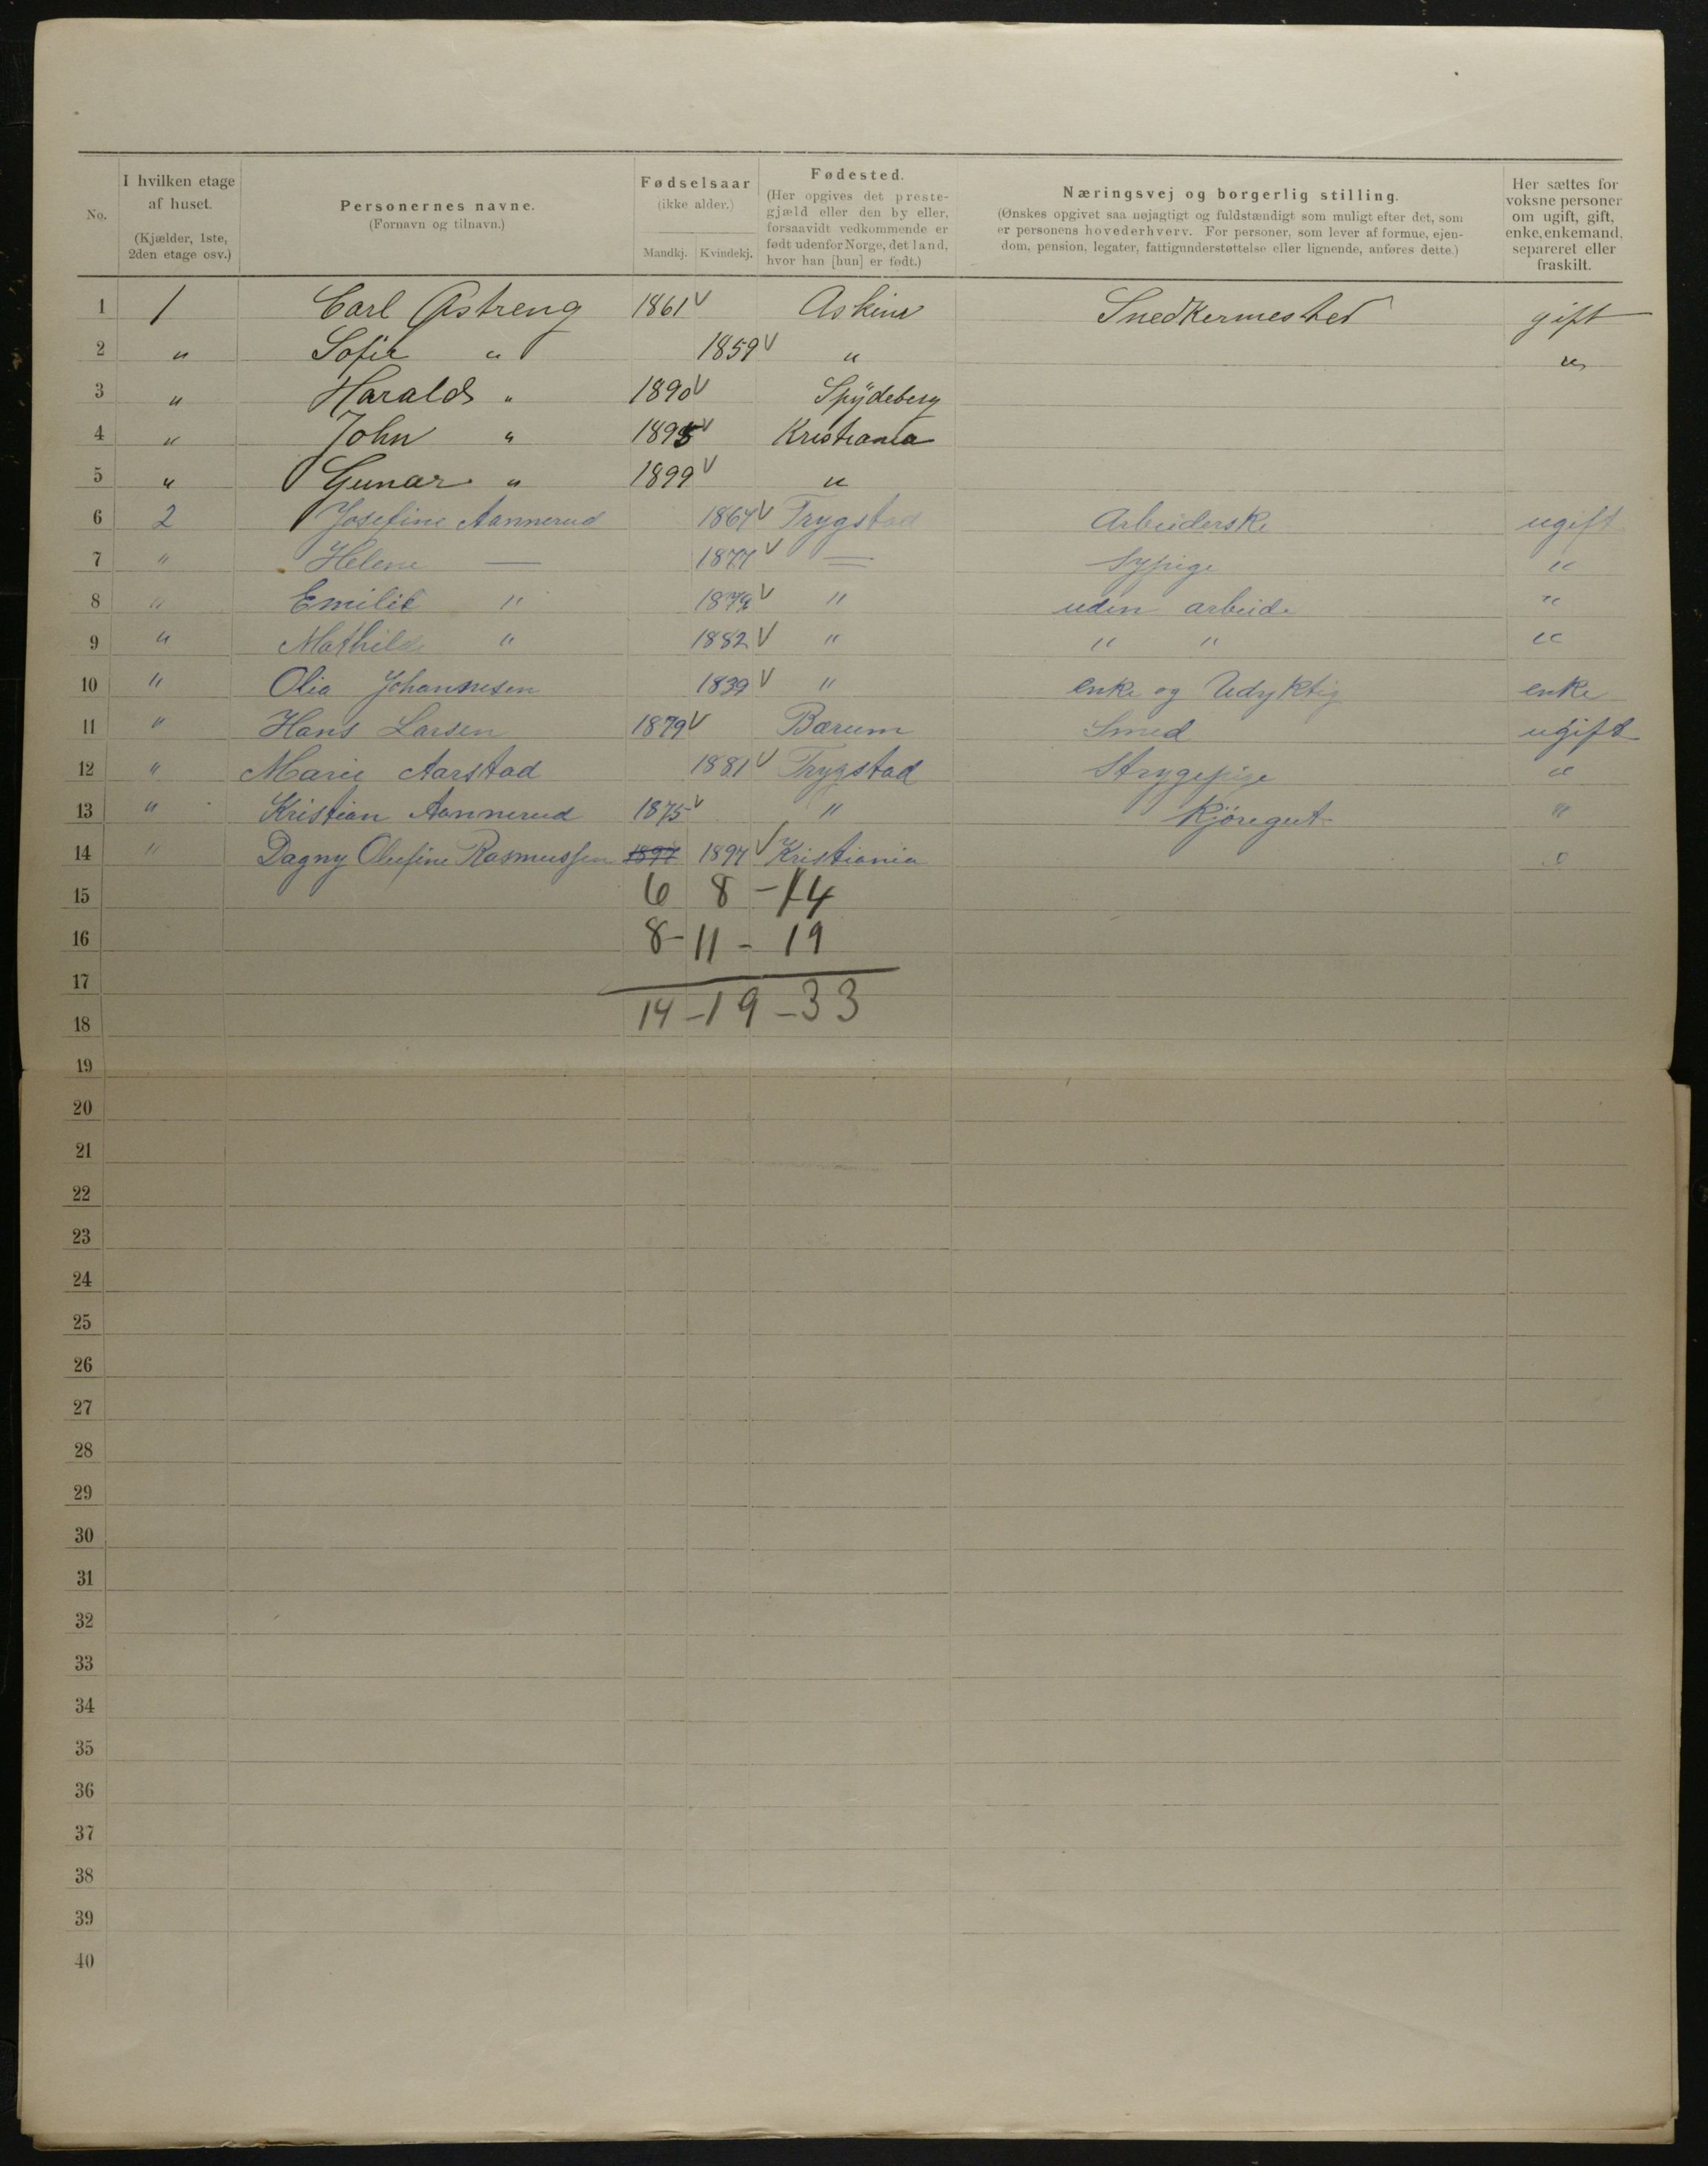 No.
I hvilken etage af huset. (Kjælder, 1ste, 2den etage osv.)
Personernes navne. (Fornavn og tilnavn.)
Fødselsaar (ikke alder.)
Mandkj. Kvindekj.
Fødested. (Her opgives det prestegjæld eller den by eller, forsaavidt vedkommende er født udenfor Norge, det land, hvor han [hun] er født.)
Næringsvej og borgerlig stilling. (Ønskes opgivet saa nøjagtigt og fuldstændigt som muligt efter det, som er personens hovederhverv. For personer, som lever af formue, ejendom, pension, legater, fattigunderstøttelse eller lignende, anføres dette.)
Her sættes for voksne personer om ugift, gift, enke, enkemand, separeret eller fraskilt.
1 1 Carl Østreng 1861 v Askim Snedkermester gift
2 " Sofie " 1859 v " "
3 " Harald " 1890 v Spydeberg
4 " John " 1895 v Kristiania
5 " Gunar " 1899 v "
6 2 Josefine Aannerud 1864 v Trygstad Arbeiderske ugift
7 " Helene — 1877 v — Sypige "
8 " Emilie " 1879 v " uden arbeide "
9 " Mathilde " 1882 v " " " "
10 " Olia Johannesen 1839 v " enke og Udyktig enke
11 " Hans Larsen 1879 v Bærum Smed ugift
12 " Marie Aarstad 1881 v Trygstad Strygepige "
13 " Kristian Aannerud 1875 v " Kjøregut "
14 " Dagny Olufine Rasmussen 1897 1897 v Kristiania "
15 6 8 - 14
16 8 - 11 - 19
17
18 14 - 19 - 33
19
20
21
22
23
24
25
26
27
28
29
30
31
32
33
34
35
36
37
38
39
40